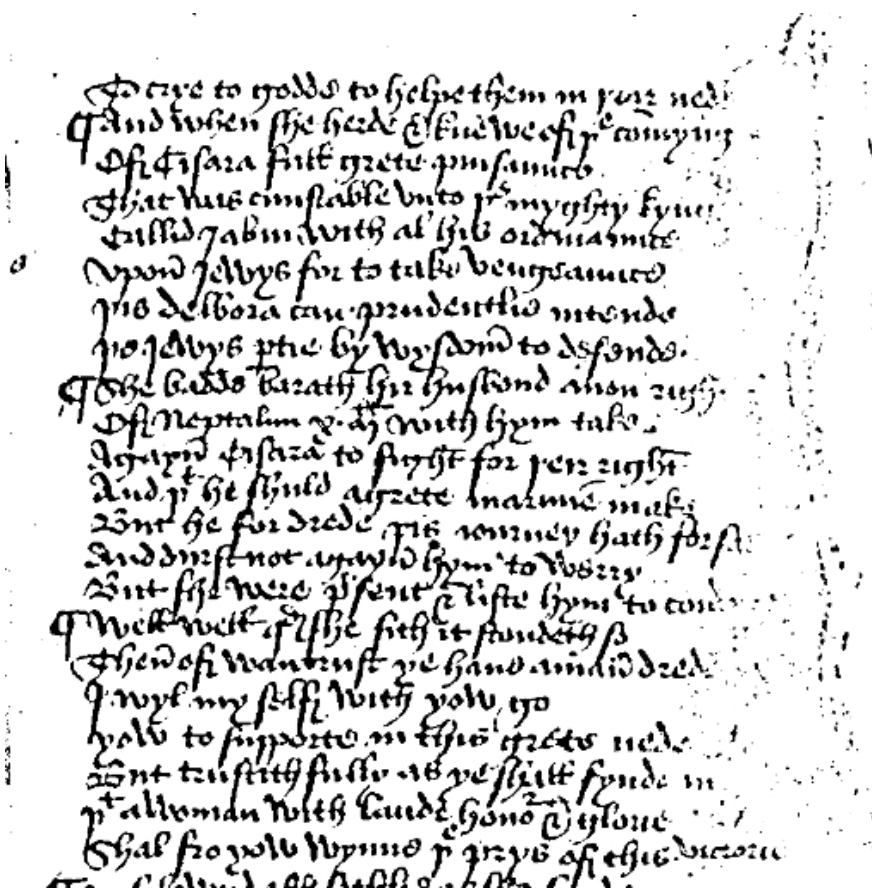 To crye to godde to helpe them in þeir ned
¶ And when she herde & knewe of þe comyng
Of Cisara full grete puisaunce
That was cunstable vnto þe myghty kyng
Callid Jabin with al his ordinaunce
Vpon Jewys for to take vengeaunce
þis delbora can prudentlie intende
þe Jewys ptie by wysdom to defende
¶ She badde barath hir husbond anon righ
Of Neptalim x. Ml with hym take
Agayn Cisara to fight for þeir right
And þt he shuld a grete make
But he for drede þis iourney hath forsa
And durst not agayn hym to werry
But she were psent & liste hym to
¶ Well well qd she sith it stondeth so
Then of wantrust ye haue a maid dred
I wyl my self with yow go
yow to supporte in this grete nede
But trustith fully as ye shull fynde in
þt a woman with laude honor & glorie
Shal fro yow wynne þe prys of this victorie